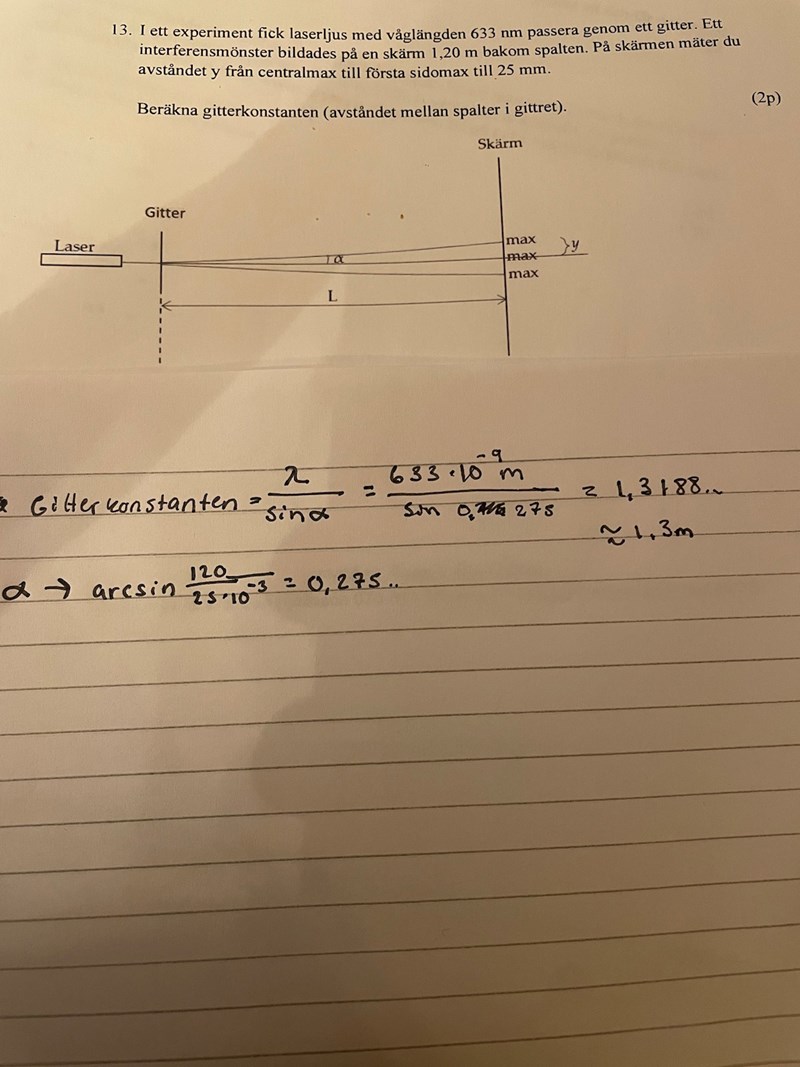 13. I ett experiment fick laserljus med våglängden 633 nm passera genom ett gitter. Ett
interferensmönster bildades på en skärm 1,20 m bakom spalten. På skärmen mäter du
avståndet y från centralmax till första sidomax till 25 mm.
Beräkna gitterkonstanten (avståndet mellan spalter i gittret).
(2p)
Skärm
Gitter
Laser
max
α
max
} y
max
L
Gitterkonstanten = λ / sin α = 633 · 10^-9 m / sin 0, 275 = 1,3188..
≈ 1,3m
α → arcsin 120 / 25·10^-3 = 0,275..